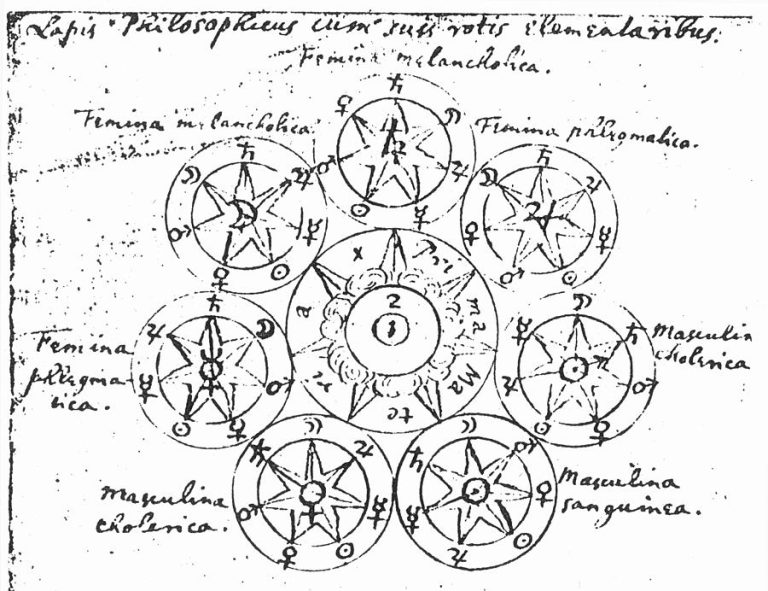 Lapis Philosophicus cum suis rotis Elementaribus.
Femina melancholica.
Femina melancholica
Femina phlegmatica.
Femina
phlegma-
tica.
Masculin
cholerica
Masculina
cholerica.
Masculina
sanguinea.
x
a
ma
Ma
te
2
1